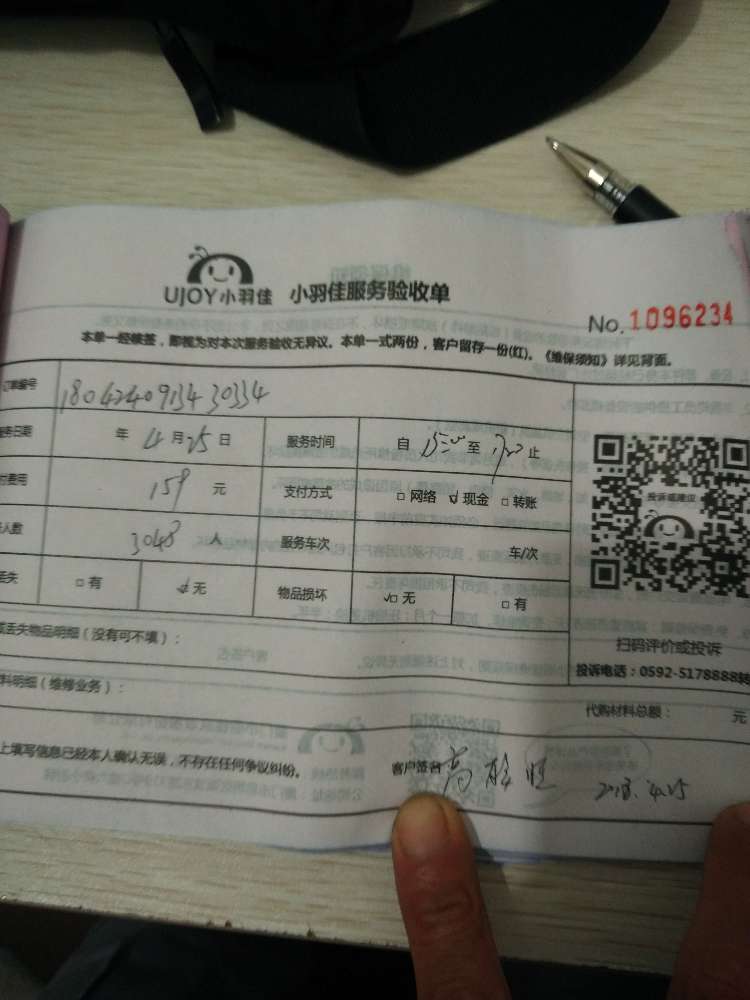 UJOY小羽佳 小羽佳服务验收单
No. 1096234
本单一经核签，即视为对本次服务验收无异议。本单一式两份，客户留存一份(红)。《维保须知》详见背面。
订单编号 1804240913430334
服务日期 年 4 月 25 日 服务时间 自 15:00 至 17:00 止
付费用 159 元 支付方式 □ 网络 ☑ 现金 □ 转账
人数 3048 人 服务车次 车/次
丢失 □ 有 ☑ 无 物品损坏 ☑ 无 □ 有
投诉或建议
丢失物品明细（没有可不填）：
扫码评价或投诉
投诉电话：0592-5178888转
料明细（维修业务）：
代购材料总额： 元
上填写信息已经本人确认无误，不存在任何争议纠纷。 客户签名 高 旺 2018.4.25